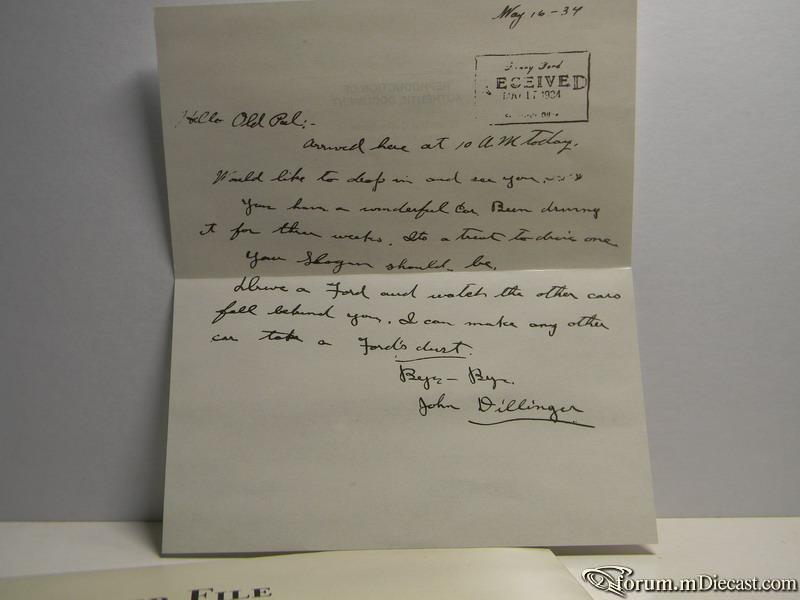 May 16-34
Henry Ford
RECEIVED
MAY 17 1934
Hello Old Pal:-
Arrived here at 10 AM today.
Would like to drop in and see you.
You have a wonderful Car Been driving
it for three weeks. Its a treat to drive one
Your Slogan should be,
Drive a Ford and watch the other cars
fall behind you. I can make any other
car take a Ford's dust.
Bye- Bye.
John Dillinger
REPRODUCTION OF
AUTHENTIC DOCUMENT
FILE
forum.mDiecast.com